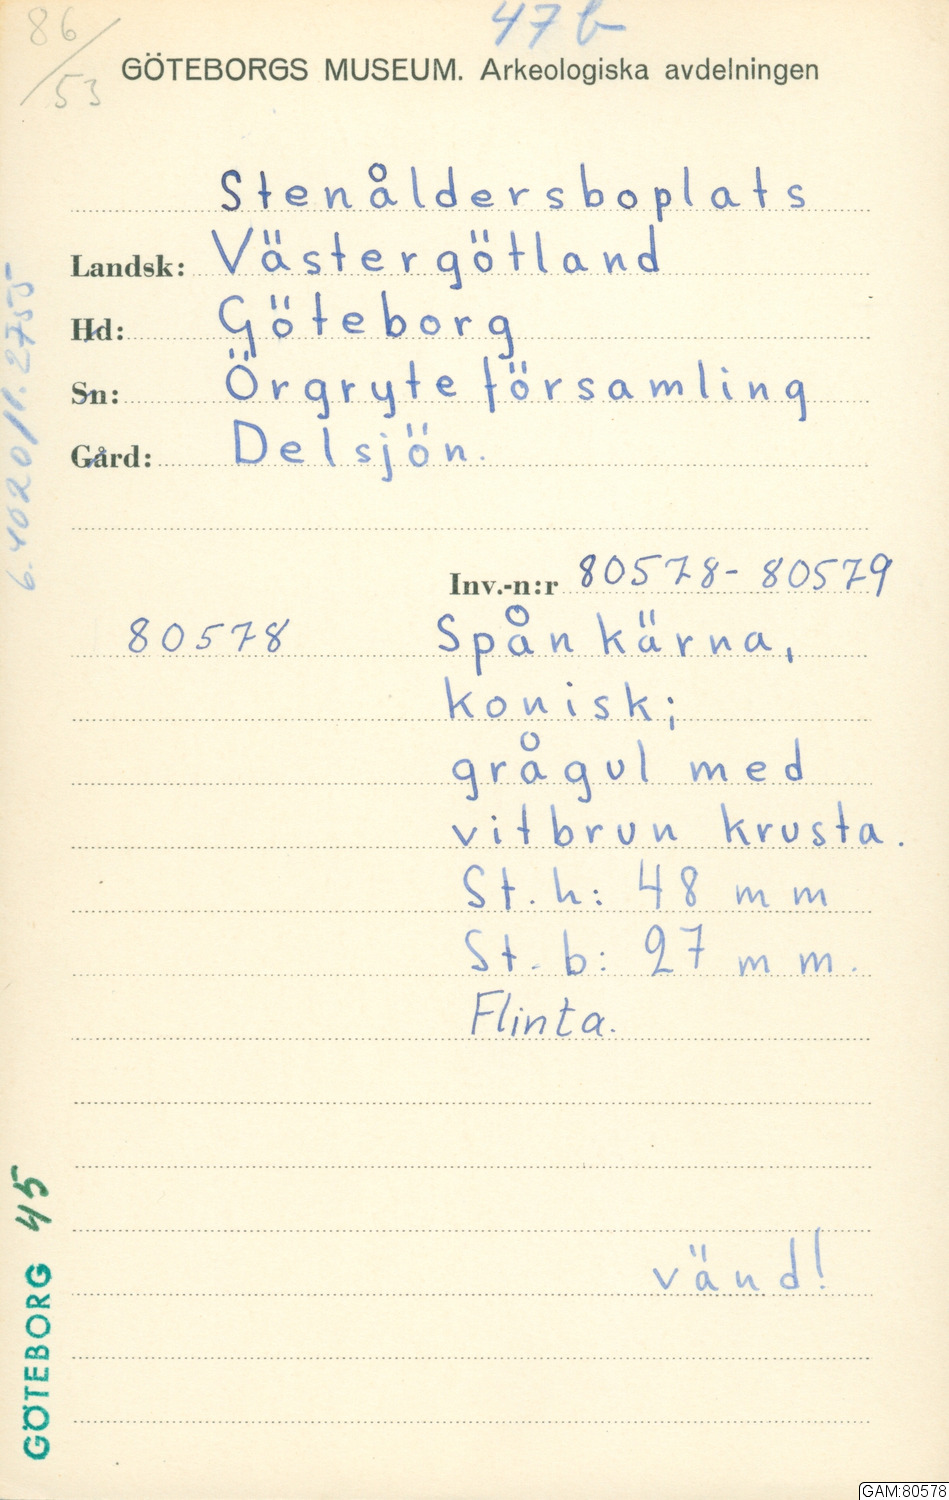 86/53
47 b
GÖTEBORGS MUSEUM. Arkeologiska avdelningen
Stenåldersboplats
Landsk: Västergötland
Hd: Göteborg
Sn: Örgryte församling
Gård: Delsjön.
Inv.-n:r 80578-80579
80578 Spånkärna,
konisk;
grågul med
vitbrun krusta.
St. h: 48 mm
St. b: 27 mm.
Flinta.
vänd!
GÖTEBORG 45
GAM:80578